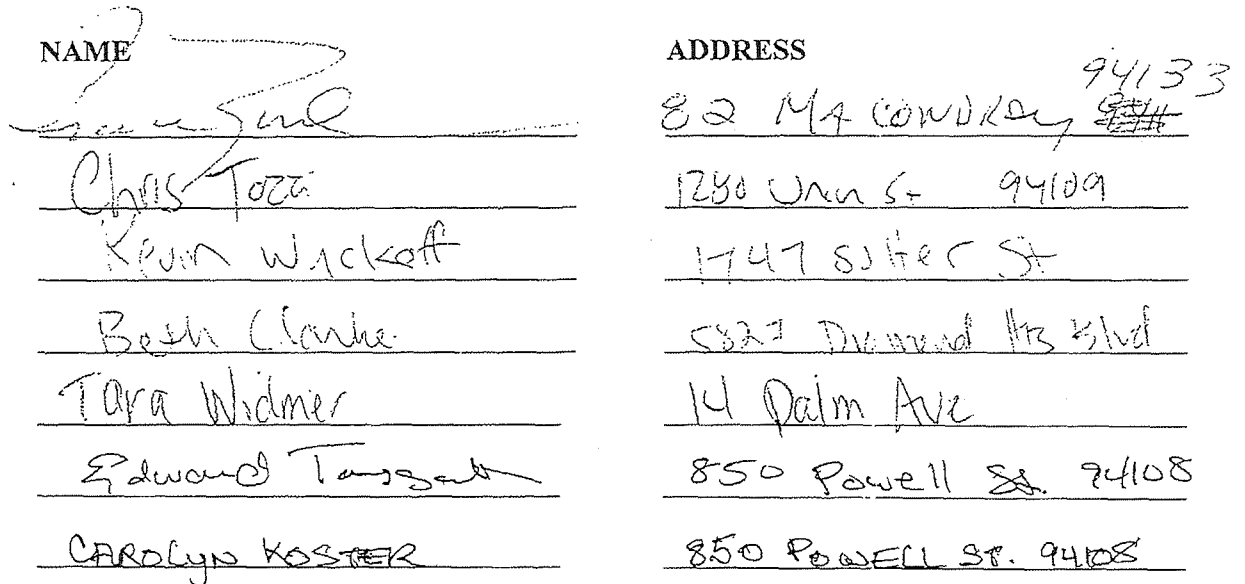 NAME ADDRESS
94133
82 MACONDRAY
Chris Tozzi 1280 St 94109
Kevin Wyckoff 1747 Sutter St
Beth Clarke Diamond Hts Blvd
Tara Widmer 14 Palm Ave
Edward 850 Powell St. 94108
CAROLYN KOSTER 850 POWELL ST. 94108